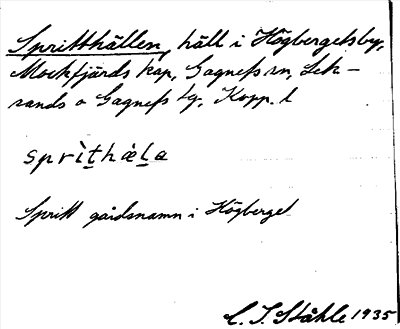 Spritthällen, häll i Högbergets by,
Mockfjärds kap, Gagnefs sn, Lek-
sands o Gagnefs tg, Kopp. l
sprìt̲hæl̲a
Spritt gårdsnamn i Högberget
C. I. Ståhle 1935